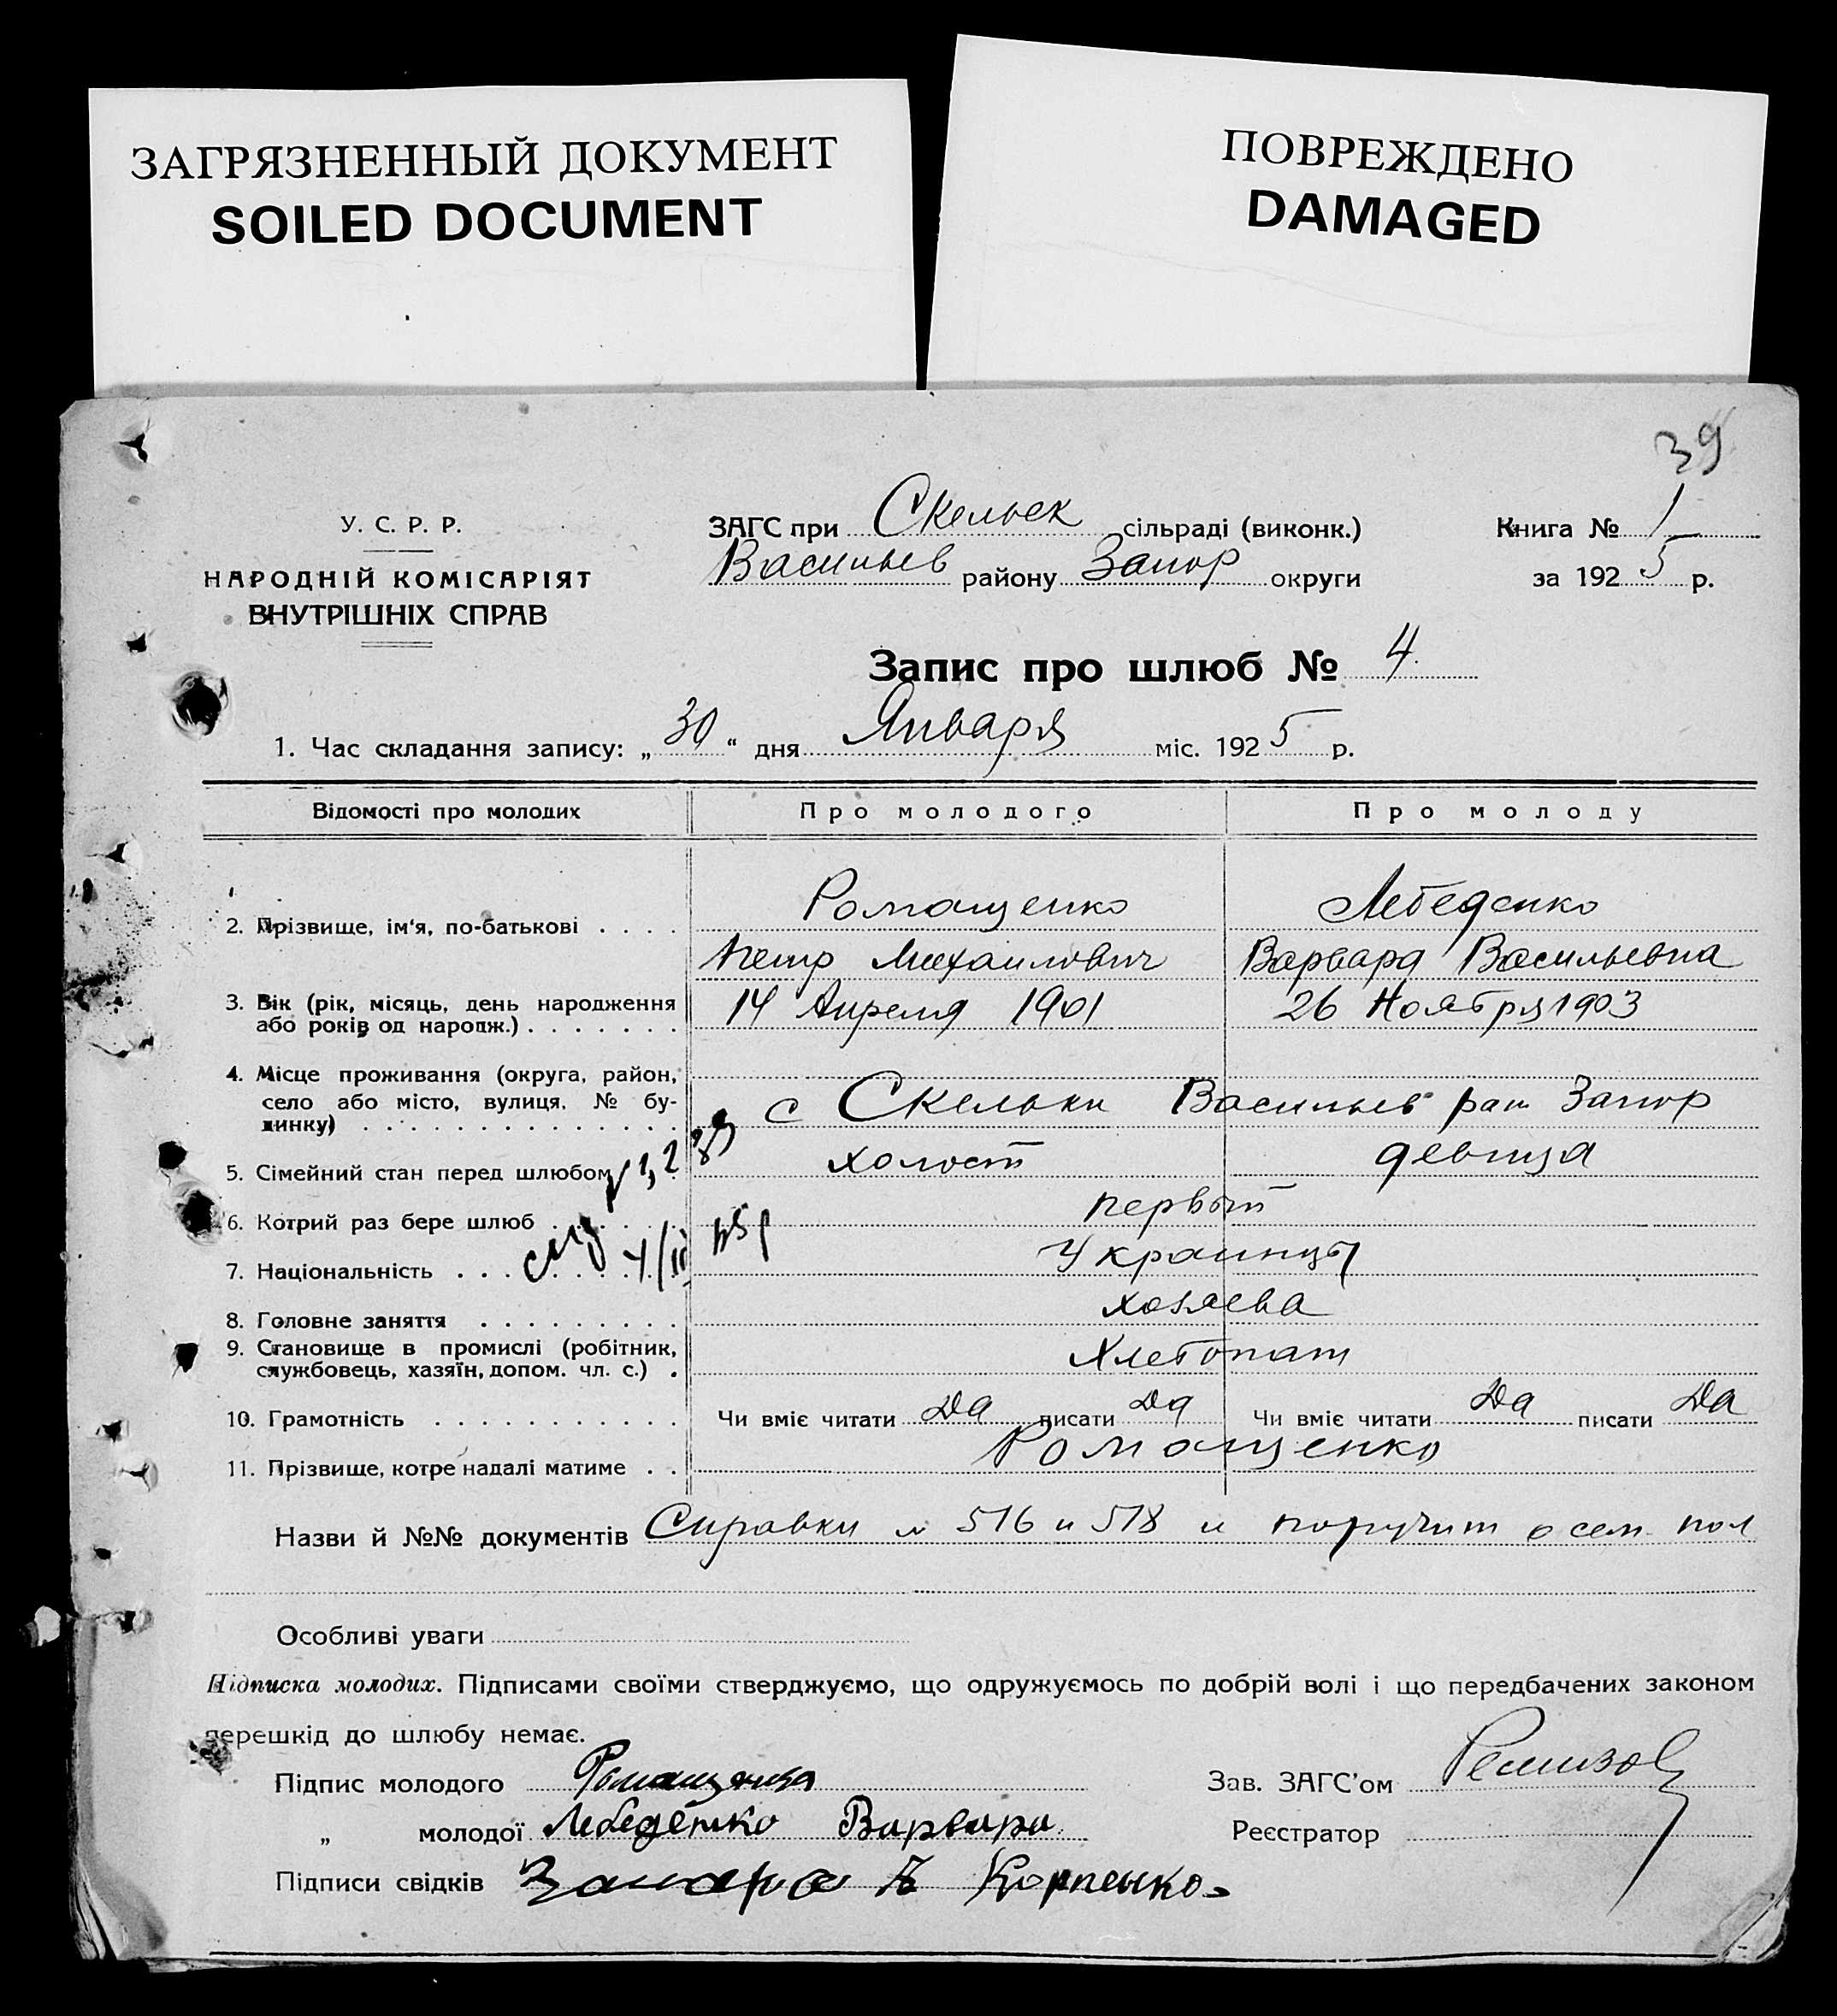 ЗАГРЯЗНЕННЫЙ ДОКУМЕНТ
SOILED DOCUMENT
ПОВРЕЖДЕНО
DAMAGED
39
У. С. Р. Р.
НАРОДНІЙ КОМІСАРІЯТ
ВНУТРІШНІХ СПРАВ
ЗАГС при Скельек сільраді (виконк.)
Васильев району Запор округи
Книга № 1
за 1925 р.
Запис про шлюб № 4.
1. Час складання запису: „30“ дня Января міс. 1925 р.
Відомості про молодих Про молодого Про молоду
2. Прізвище, ім'я, по-батькові . . . . Ромащенко Лебеденко
Петр Михаилович Варвара Васильевна
3. Вік (рік, місяць, день народження або років од народж.) . . . . . . . 14 Апреля 1901 26 Ноября 1903
4. Місце проживання (округа, район, село або місто, вулиця, № будинку) . . . . . . . . . . . . . . с Скельки Васильев рай Запор
5. Сімейний стан перед шлюбом холост девица
6. Котрий раз бере шлюб . . . . . . . первый
7. Національність . . . . . . . . . Украинцы
8. Головне заняття . . . . . . . . . хозяева
9. Становище в промислі (робітник, службовець, хазяїн, допом. чл. с.) . Хлебопаш
10. Грамотність . . . . . . . . . . . Чи вміє читати Да писати Да Чи вміє читати Да писати Да
11. Прізвище, котре надалі матиме . . Ромащенко
Назви й №№ документів Справки № 516 и 518 и о сем. пол
Особливі уваги
Підписка молодих. Підписами своїми стверджуємо, що одружуємось по добрій волі і що передбачених законом
перешкід до шлюбу немає.
Підпис молодого Ромащенко
Зав. ЗАГС'ом Ремизов
„ молодої Лебеденко Варвара
Реєстратор
Підписи свідків Карпенко